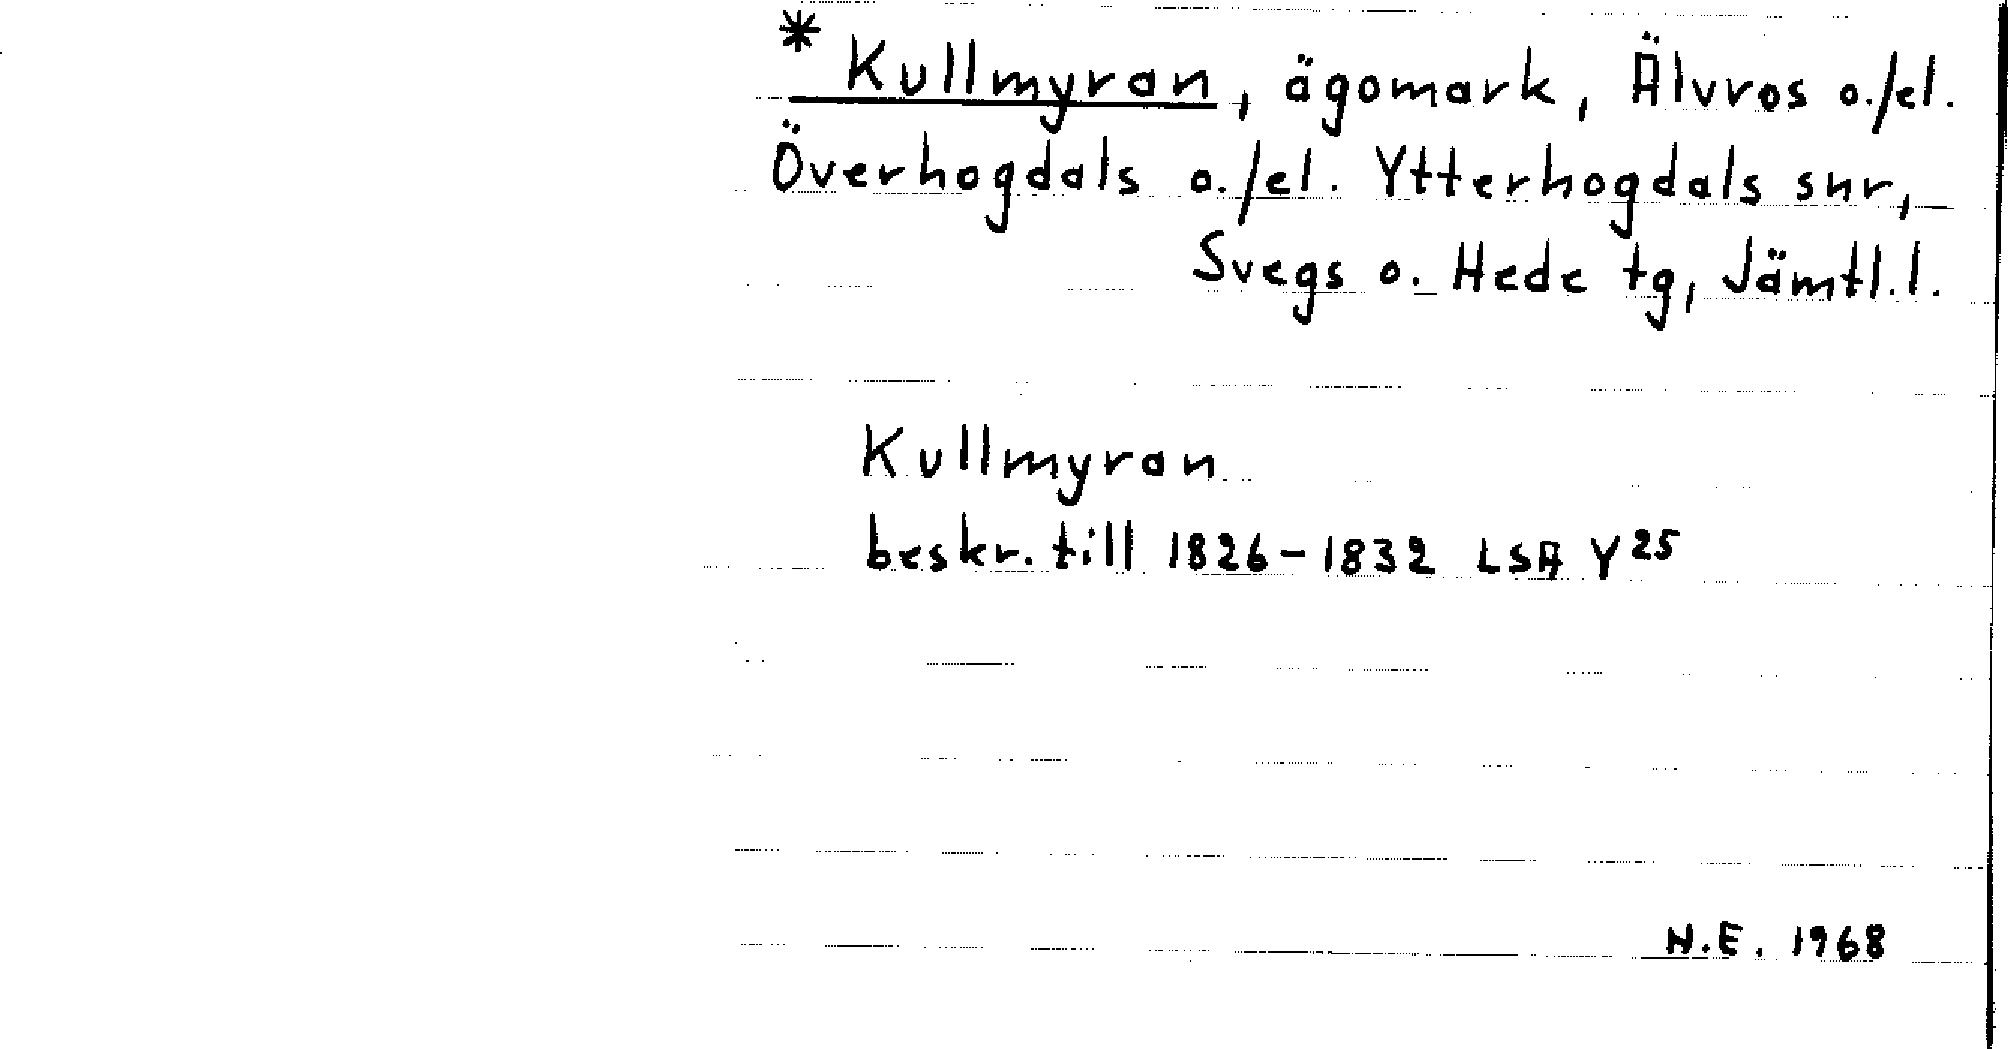 * Kullmyran, ägomark, Älvros o./el.
Överhogdals o./el. Ytterhogdals snr,
Svegs o. Hede tg, Jämtl.l.
Kullmyran
beskr. till 1826-1832 LSA Y 25
N.E. 1968